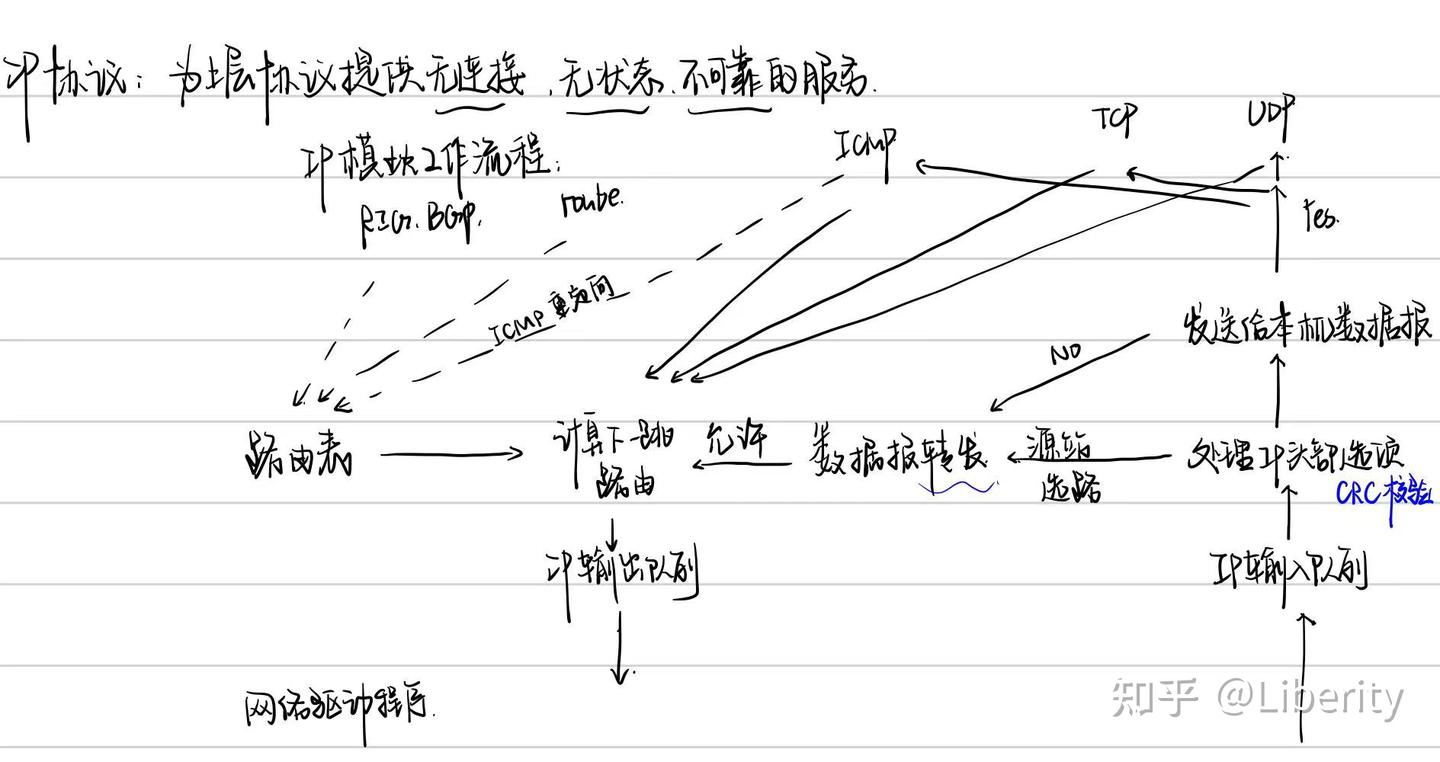 IP协议：为上层协议提供无连接、无状态、不可靠的服务.
IP模块工作流程：
ICMP
TCP
UDP
BGP.
route.
Yes.
ICMP 重定向
发送给本机数据报
NO
路由表
计算下一跳
路由
允许
数据报转发
源站
选路
处理IP头部选项
CRC校验
IP输出队列
IP输入队列
网络驱动程序.
知乎 @Liberity